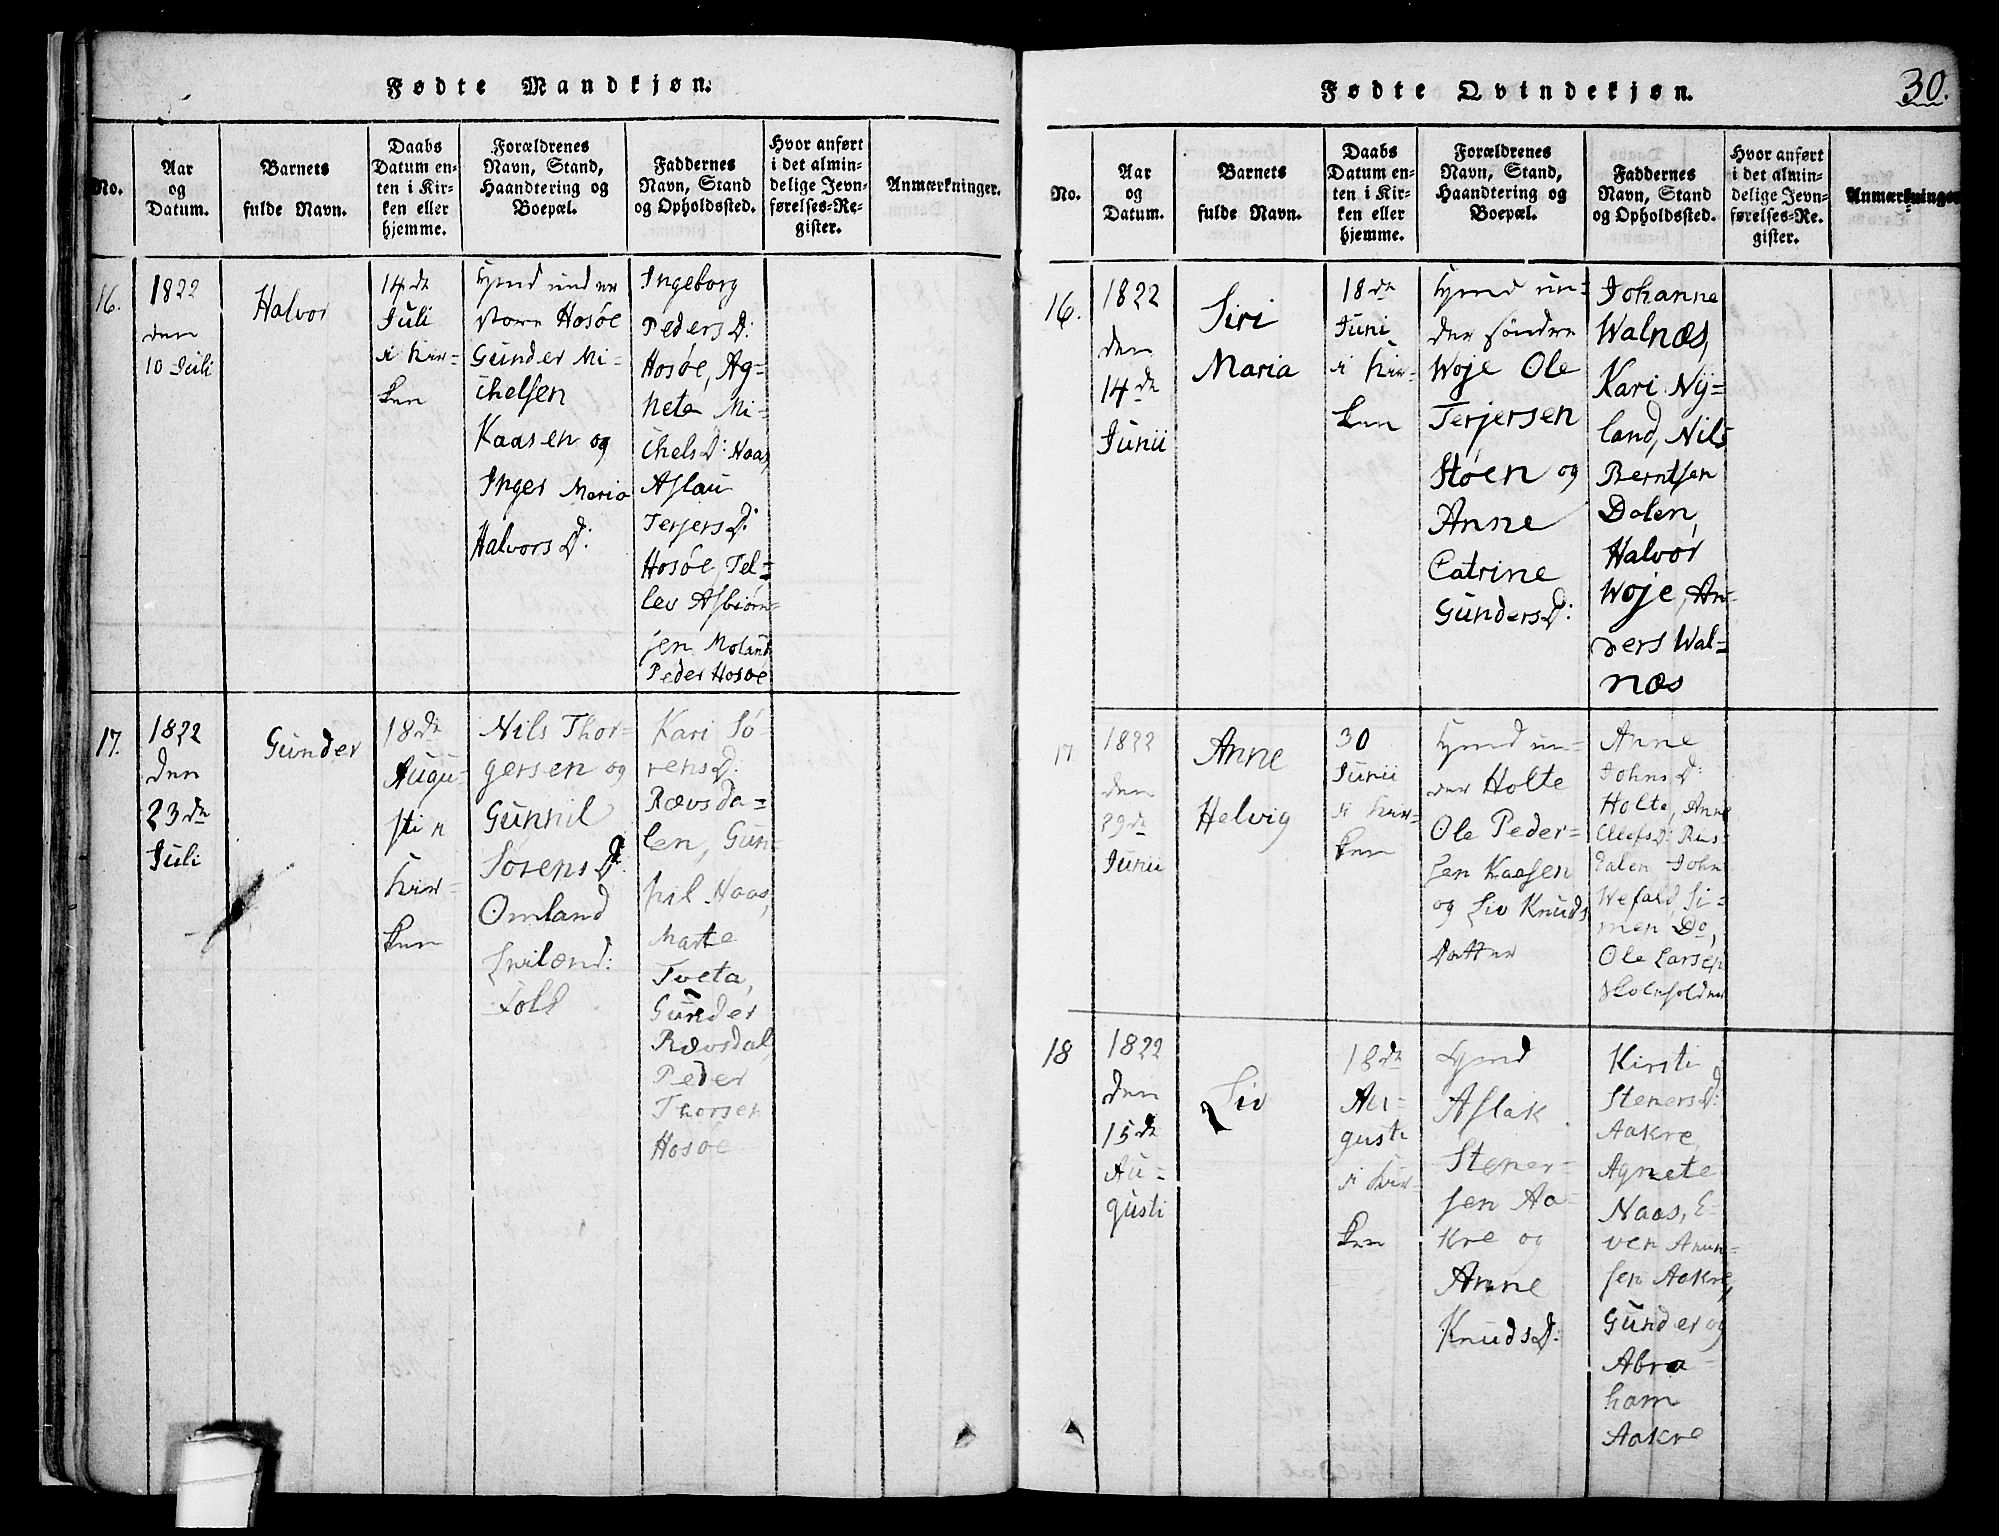 Fødte Mandkjøn.
No.
Aar
og
Datum.
Barnets
fulde Navn.
Daabs
Datum en-
ten i Kir-
ken eller
hjemme.
Forældrenes
Navn, Stand,
Haandtering og
Boepæl.
Faddernes
Navn, Stand
og Opholdssted.
Hvor anført
i det almin-
delige Jevn-
førelses-Re-
gister.
Anmærkninger.
16.
1822
den
10 Juli
Halvor
14de
Juli
i Kir-
ken
Hosøe
Gunder Mi-
chelsen
Kaasen og
Inger Maria
Halvors D:
Ingeborg
Peders D:
Hosøe, Ag-
nete Mi-
chels D: Naas,
Aslau
Terjers D:
Hosøe, Tel-
lev Asbiørn-
sen Moland,
Peder Hosøe
17.
1822
den
23de
Juli
Gunder
18de
Augu-
sti i
Kir-
ken
Nils Thor-
gersen og
Gunnil
Sørens D:
Omland
Kari Sø-
rens D:
Rævsda-
len, Gun-
nil Naas,
Marte
Tveta,
Gunder
Rævsdal,
Peder
Thorsen
Hosøe
Fødte Qvindekjøn.
30.
No.
Aar
og
Datum.
Barnets
fulde Navn.
Daabs
Datum en-
ten i Kir-
ken eller
hjemme.
Forældrenes
Navn, Stand,
Haandtering og
Boepæl.
Faddernes
Navn, Stand
og Opholdssted.
Hvor anført
i det almin-
delige Jevn-
førelses-Re-
gister.
Anmærkninger
16.
1822
den
14de
Junii
Siri
Maria
18de
Juni
i Kir-
ken
un-
der søndre
Woje Ole
Terjersen
Støen og
Anne
Catrine
Gunders D:
Johanne
Walnæs,
Kari Ny-
land, Nils
Berntsen
Dalen,
Halvor
Woje, An-
ders Wal-
næs
17
1822
den
29de
Junii
Anne
Helvig
30
Junii
i Kir-
ken
un-
der Holte
Ole Peder-
sen Kaasen
og Liv Knuds
Datter
Anne
Johns D:
Holte, Anne
Ollefs D: Rus-
dalen John
Wefald, Si-
men Do,
Ole Larsen
Skoleholder
18
1822
den
15de
Au-
gusti
Liv
18de
Au-
gusti
i Kir-
ken
Aslak
Stener-
sen Aa-
kre og
Anne
Knuds D:
Kirsti
Steners D:
Aakre,
Agnete
Naas, E-
ven Amun-
sen Aakre,
Gunder og
Abra-
ham
Aakre